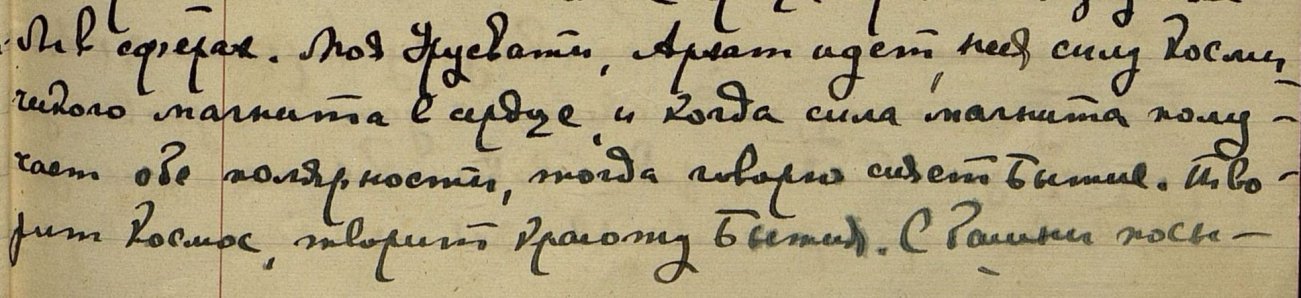 ли в сферах. Моя Урусвати, Архат идет, неся силу Косми
ческого магнита в сердце, и когда сила магнита полу-
чает обе полярности, тогда говорю сияет Бытие. Тво-
рит Космос, творит красоту Бытия. С Башни посы-